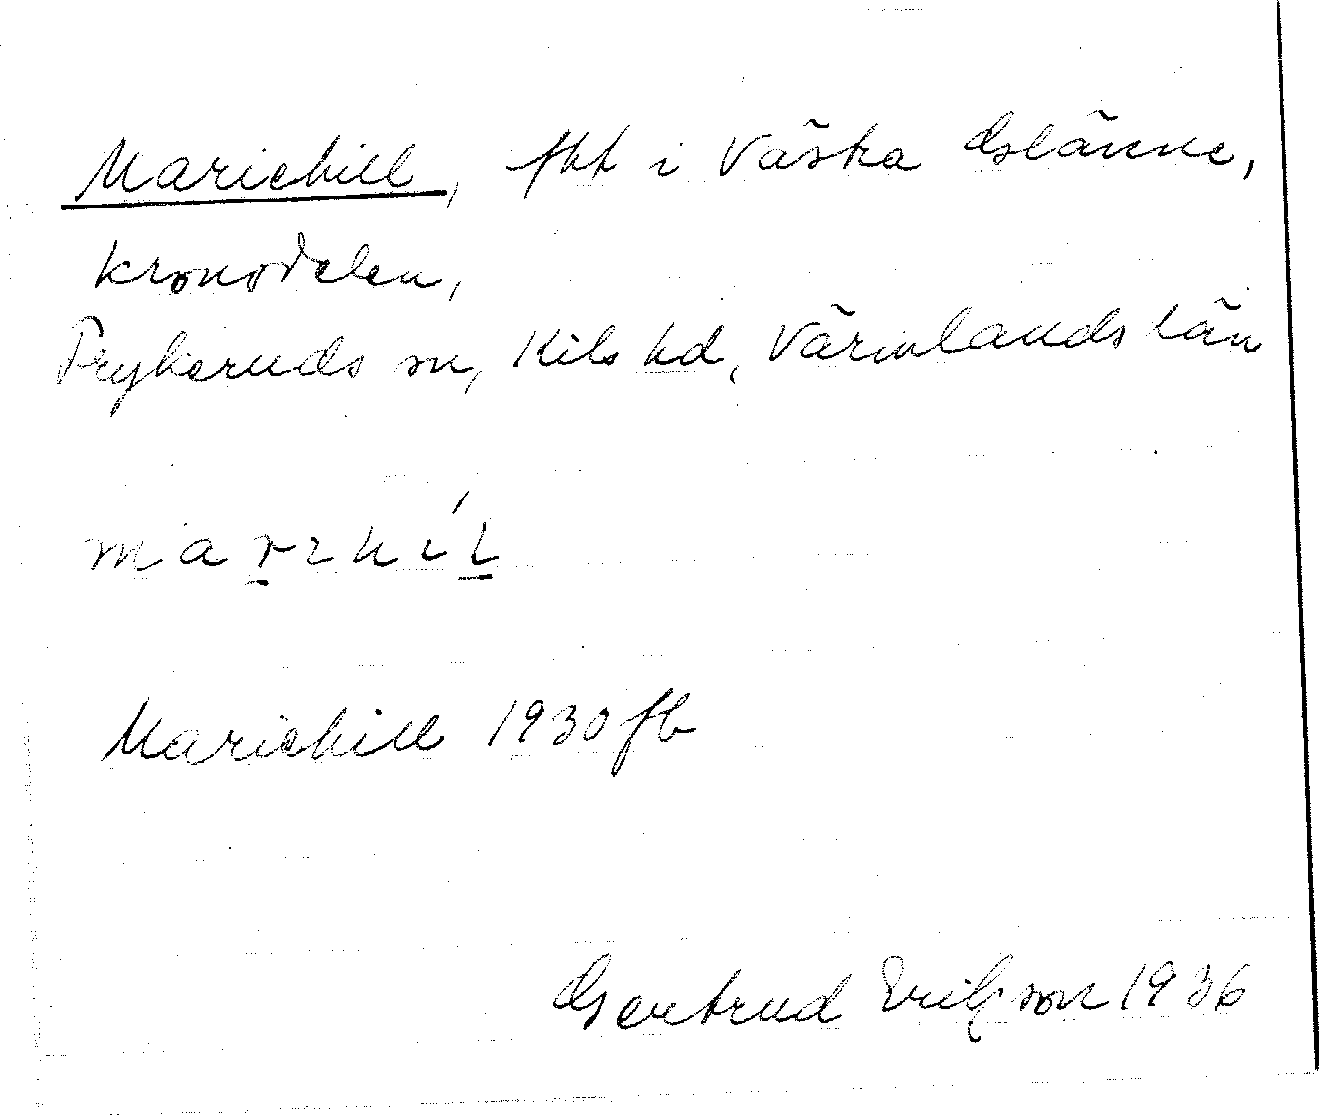 Mariehill, fht i Västra Gslänne,
kronodelen,
Frykeruds sn, Kils hd, Värmlands län
marɩhíl
Mariehill 1930 fb
Gertrud Eriksson 1936